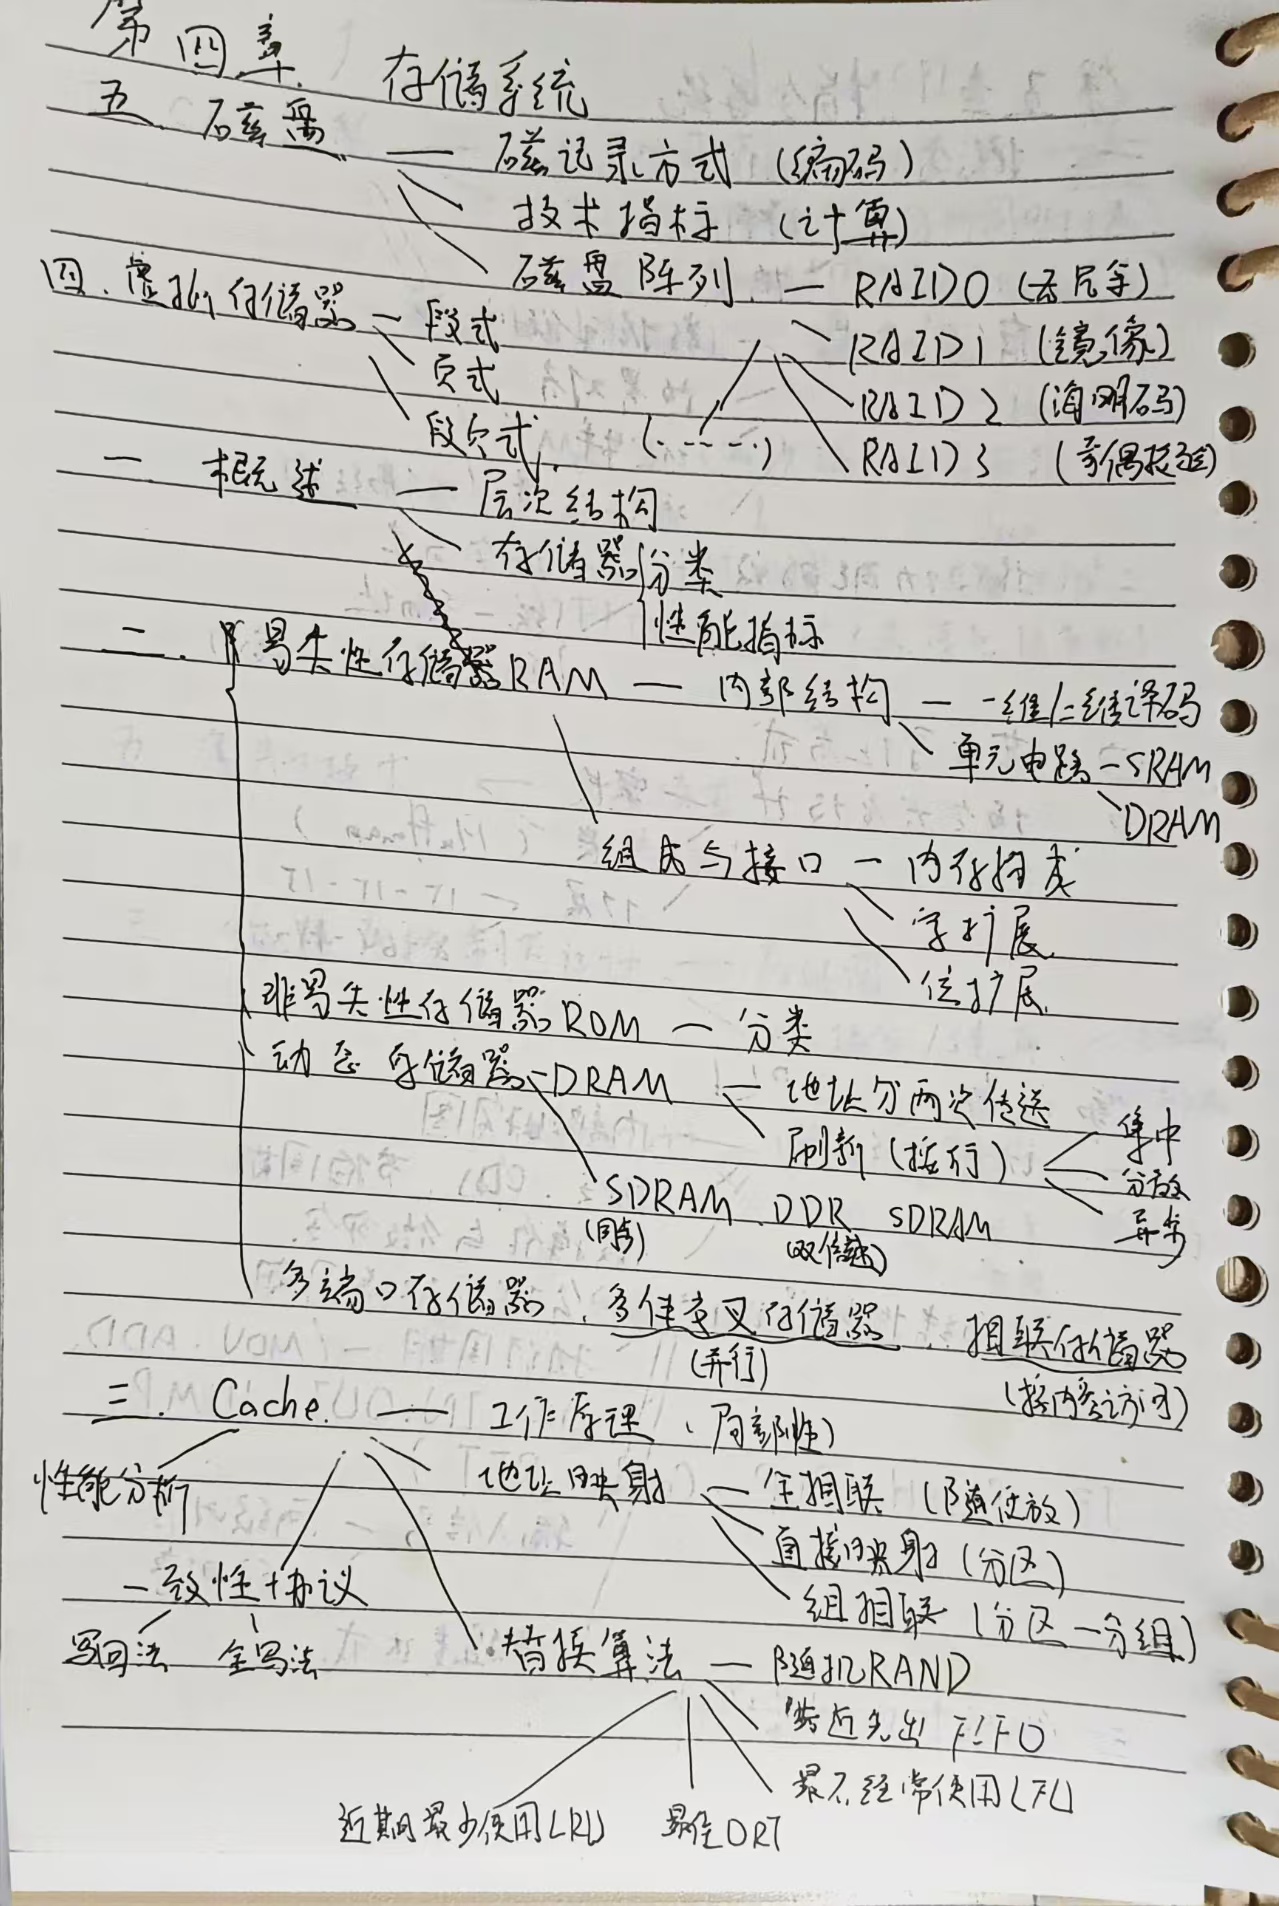 第四章 存储系统
五 磁盘 — 磁记录方式 (编码)
技术指标 (计算)
磁盘阵列 — RAID0 (无冗余)
四、虚拟存储器 — 段式
RAID1 (镜像)
页式
RAID2 (海明码)
段页式 (·----)
RAID3 (奇偶校验)
一 概述 — 层次结构
存储器 分类
性能指标
二. 易失性存储器RAM — 内部结构 — 一维/二维译码
单元电路 — SRAM
DRAM
组成与接口 — 内存构成
字扩展
位扩展
非易失性存储器ROM — 分类
动态存储器-DRAM — 地址分两次传送
刷新 (按行) 集中
分散
异步
SDRAM. DDR SDRAM
(同步) (双倍速)
多端口存储器. 多体交叉存储器 相联存储器
(并行) (按内容访问)
三. Cache. — 工作原理 (局部性)
性能分析 地址映射 — 全相联 (随便放)
直接映射 (分区)
一致性协议 组相联 (分区-分组)
写回法 全写法 替换算法 — 随机RAND
先出 FIFO
最不经常使用LFU
近期最少使用LRU 最佳OPT